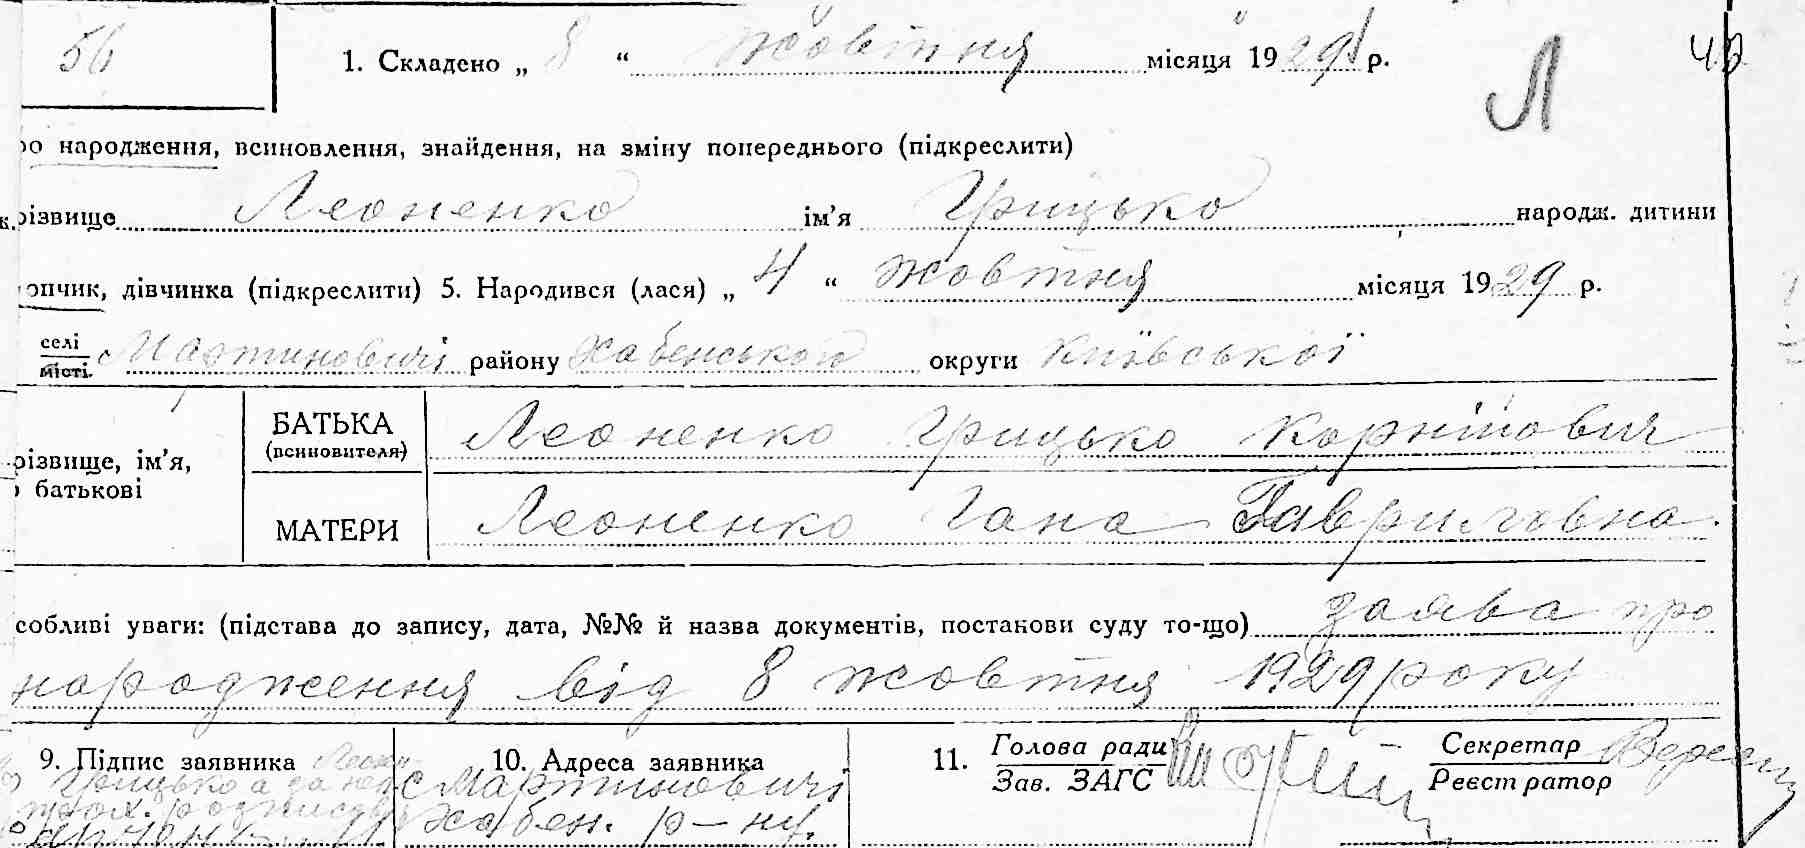 56
1. Складено „ 8 “ жовтня місяця 1929 р.
Л
42
ро народження, всиновлення, знайдення, на зміну попереднього (підкреслити)
різвище Леоненко ім’я Грицько народж. дитини
опчик, дівчинка (підкреслити) 5. Народився (лася) „ 4 “ жовтня місяця 1929 р.
селі
місті с Мартиновичі району Хабенського округи Київської
БАТЬКА
(всиновителя)
Леоненко Грицько Корнійович
різвище, ім’я,
о батькові
МАТЕРИ Леоненко Гана Гавриловна.
собливі уваги: (підстава до запису, дата, №№ й назва документів, постанови суду то-що) заява про
народження від 8 жовтня 1929 року
9. Підпис заявника
Грицько а за неп
10. Адреса заявника
с Мартиновичі
Хабен. р-ну.
11. Голова ради
Зав. ЗАГС
Секретар
Реєстратор